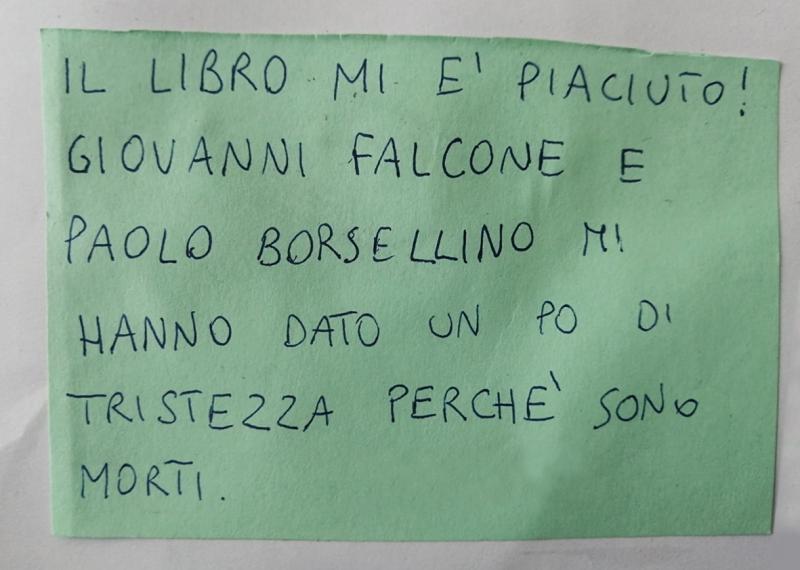 IL LIBRO MI E' PIACIUTO!
GIOVANNI FALCONE E
PAOLO BORSELLINO MI
HANNO DATO UN PO DI
TRISTEZZA PERCHE` SONO
MORTI.